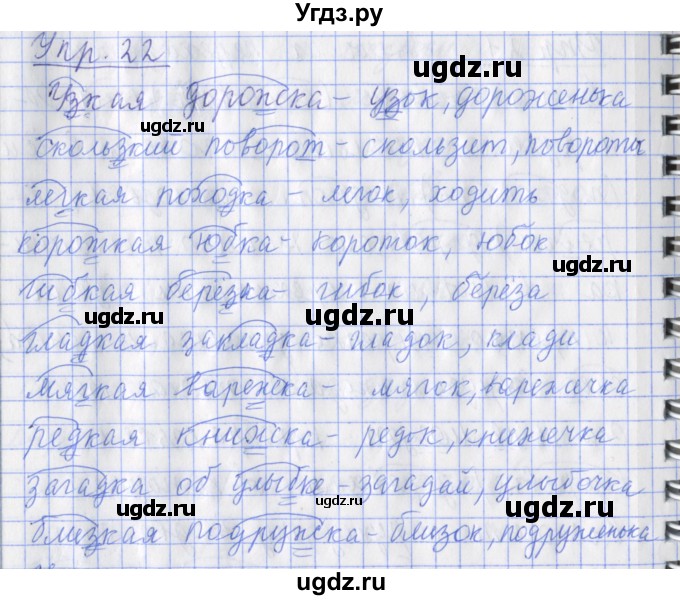 Угдз.ру
Упр. 22
ugdz.ru
Узкая дорожка - узок, дороженька
ugdz.ru
ugdz.ru
скользкий поворот - скользит, повороты
лёгкая походка - легок, ходить
ugdz.ru
короткая юбка - короток, юбок
ugdz.ru
гибкая берёзка - гибок, берёза
ugdz.ru
ugdz.ru
гладкая закладка - гладок, клади
мягкая варежка - мягок, варежечка
ugdz.ru
редкая книжка - редок, книжечка
загадка об улыбке - загадай, улыбочка
ugdz.ru
ugdz.ru
близкая подружка - близок, подруженька
ugdz.ru